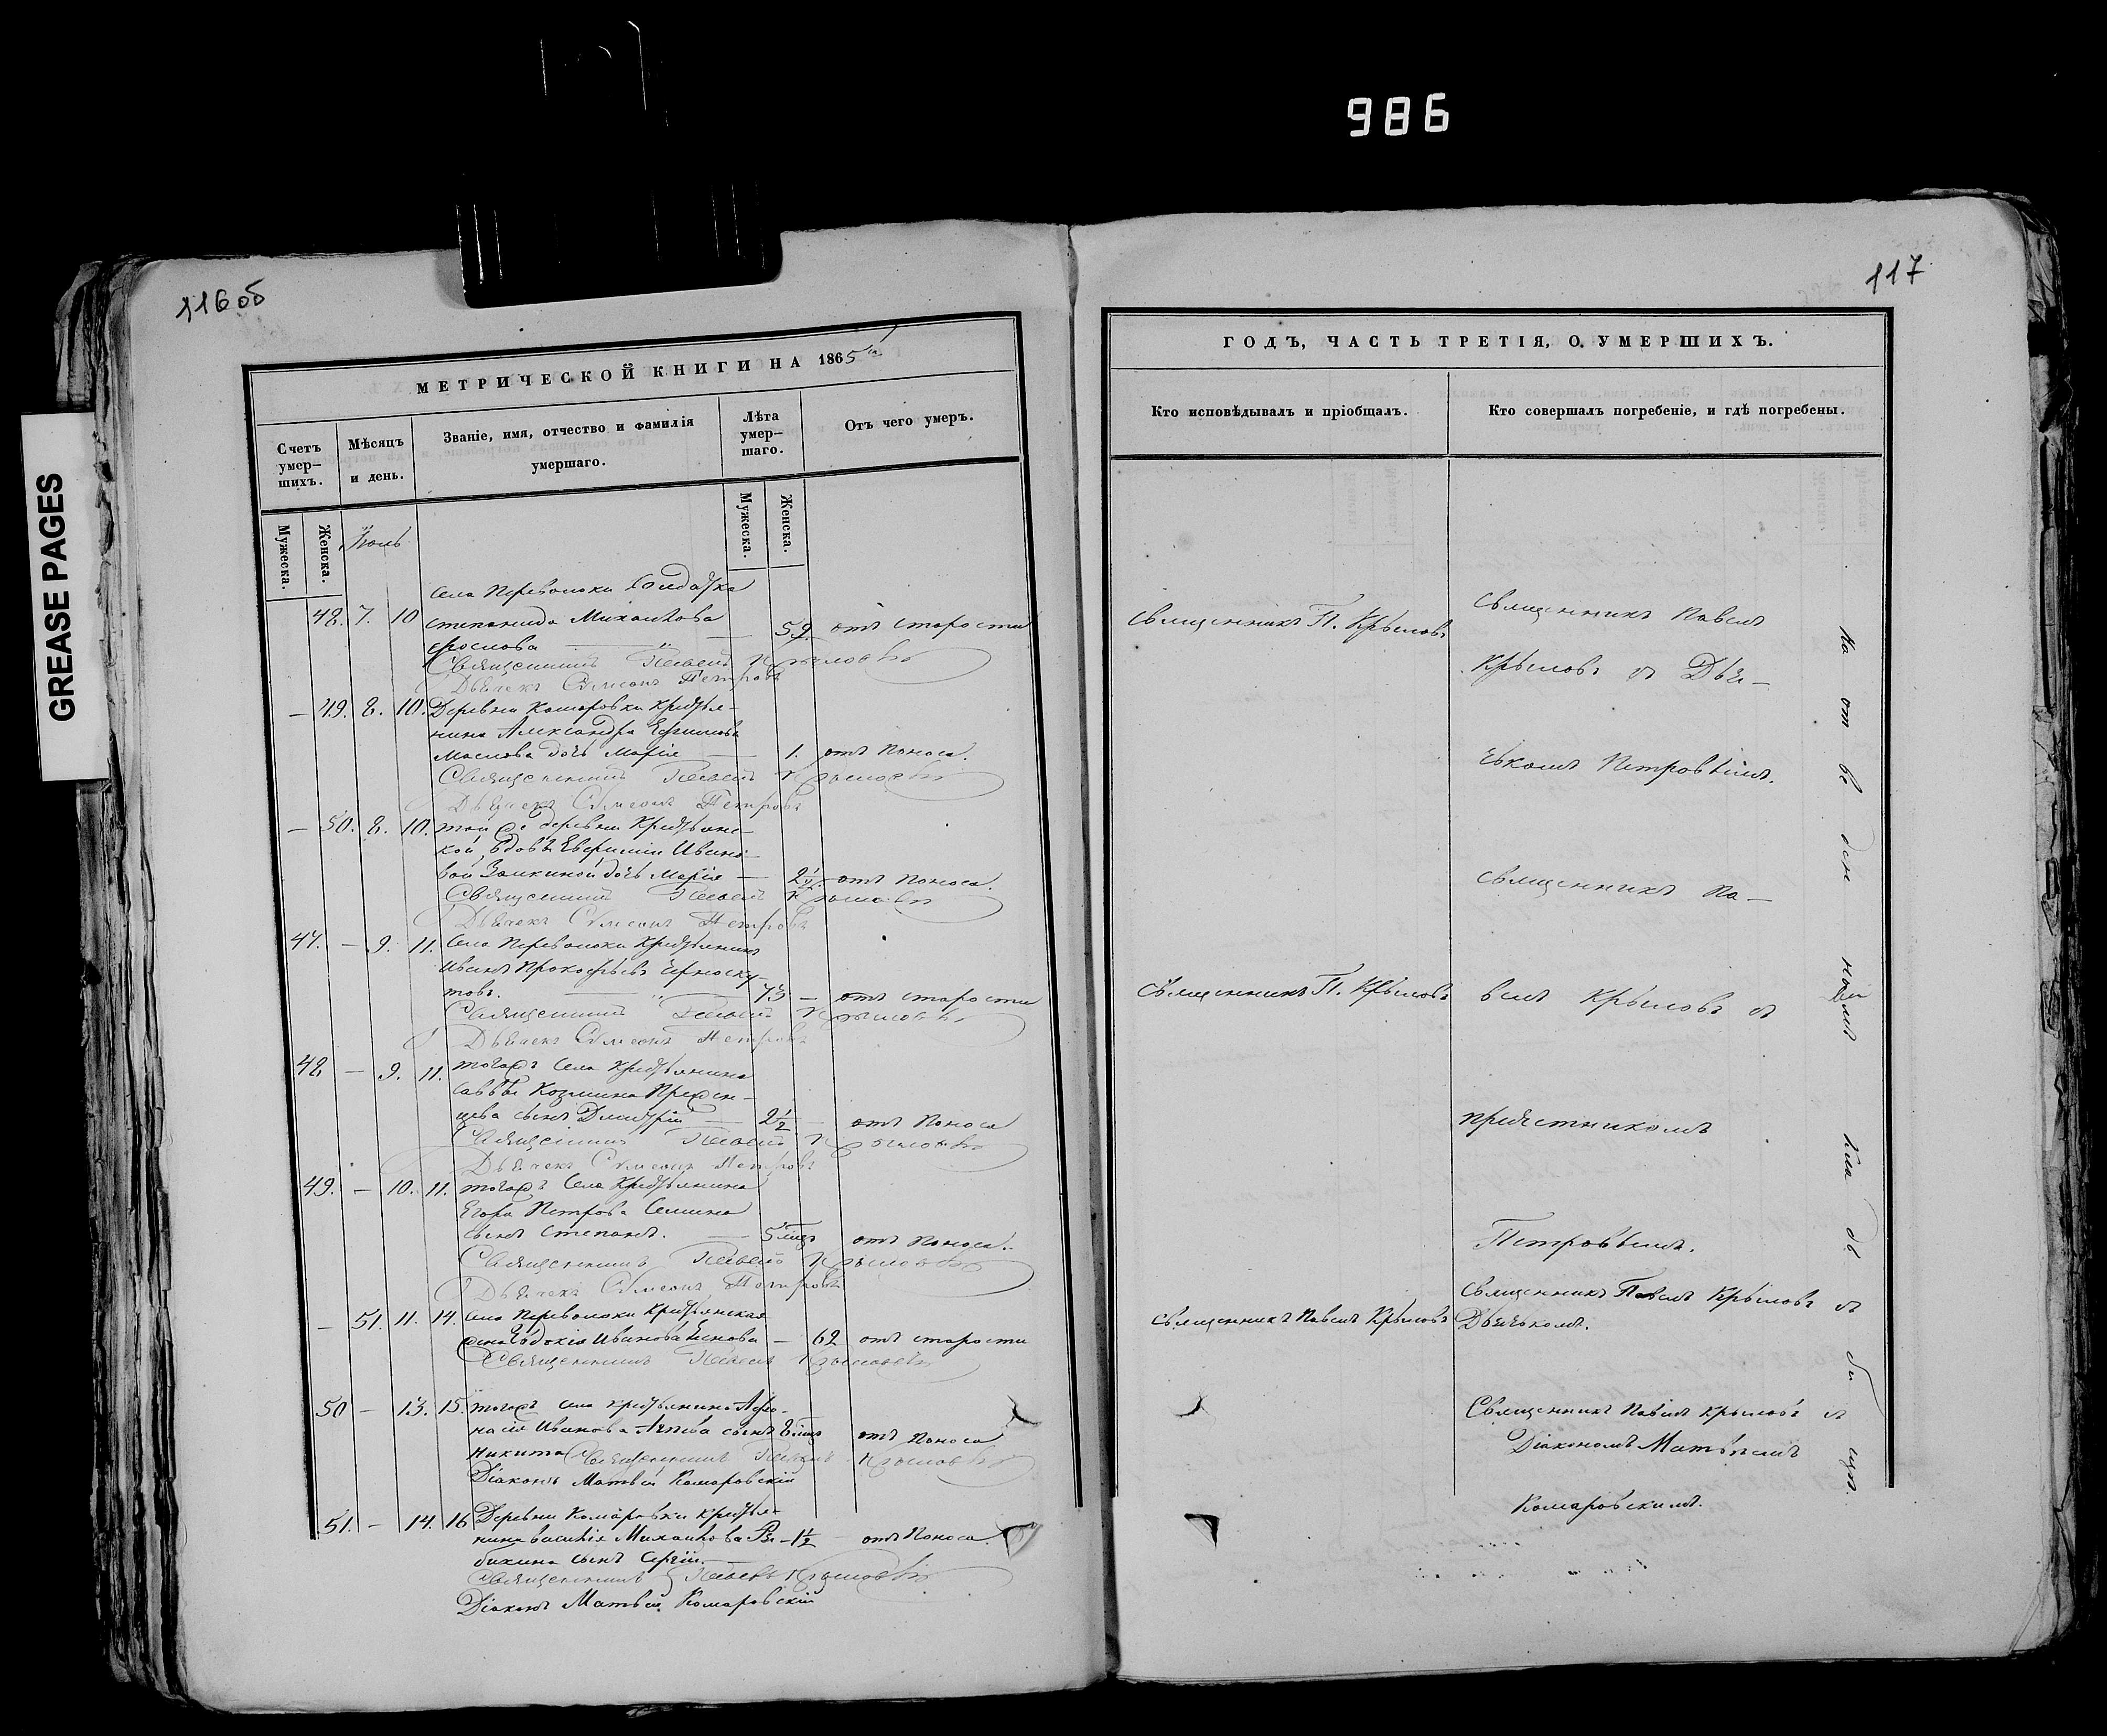 986
116 об
117
GREASE PAGES
МЕТРИЧЕСКОЙ КНИГИ НА 1865
Счетъ умер-
шихъ.
Мѣсяцъ
и день.
Званіе, имя, отчество и фамилія
умершаго.
Лѣта
умер-
шаго.
Отъ чего умеръ.
Мужеска.
Женска.
Мужеска.
Женска.
Іюль
Села Переволоки Солдатка
48. 7. 10 Степанида Михайлова
59 отъ старости
Священникъ Павелъ Крыловъ
Дьячекъ Симеонъ Петровъ
— 49. 8. 10. Деревни Комаровки Крестья-
нина Александра Ефимова
Маслова дочь Марія — 1. отъ поноса.
Священникъ Павелъ Крыловъ
Дьячекъ Симеонъ Петровъ
— 50. 8. 10. той же деревни Крестьянс-
кой вдовы Евфиміи Ивано-
вой дочь Марія — 2½ отъ поноса.
Священникъ Павелъ Крыловъ
Дьячекъ Симеонъ Петровъ
47. — 9. 11. Села Переволоки Крестьянинъ
Иванъ Прокофьевъ Черноску-
товъ. 73 — отъ старости
Священникъ Павелъ Крыловъ
Дьячекъ Симеонъ Петровъ
48 — 9. 11. тогожъ Села Крестьянина
Саввы Козмина
сынъ Димитрій — 2½ — отъ поноса
Священникъ Павелъ Крыловъ
Дьячекъ Симеонъ Петровъ
49. — 10. 11. тогожъ Села Крестьянина
Егора Петрова Семина
сынъ Степанъ. — 5 мцъ отъ поноса.
Священникъ Павелъ Крыловъ
Дьячекъ Симеонъ Петровъ
— 51. 11. 14. Села Переволоки Крестьянская
жена Евдокія Иванова — 62 отъ старости
Священникъ Павелъ Крыловъ
50 — 13. 15. тогожъ села крестьянина Афо-
насія Иванова сынъ 8 мцъ отъ поноса
Никита Священникъ Павелъ Крыловъ
Діаконъ Матвѣй Комаровскій
51. — 14. 16 Деревни Комаровки крестья-
нина Василія Михайлова Ря- — 1½ отъ поноса.
бихина сынъ Сергій. —
Священникъ Павелъ Крыловъ
Діаконъ Матвѣй Комаровскій
ГОДЪ, ЧАСТЬ ТРЕТІЯ, О УМЕРШИХЪ.
Кто исповѣдывалъ и пріобщалъ.
Кто совершалъ погребеніе, и гдѣ погребены.
Священникъ П. Крыловъ
Священникъ Павелъ
Крыловъ съ Дья-
чкомъ Петровымъ.
Священникъ Па-
Священникъ П. Крыловъ
велъ Крыловъ съ
причетникомъ
Петровымъ.
Священникъ Павелъ Крыловъ
Священникъ Павелъ Крыловъ съ
Дьячькомъ.
Священникъ Павелъ Крыловъ съ
Діакономъ Матвѣемъ
Комаровскимъ.
На отведенномъ кладбищѣ.